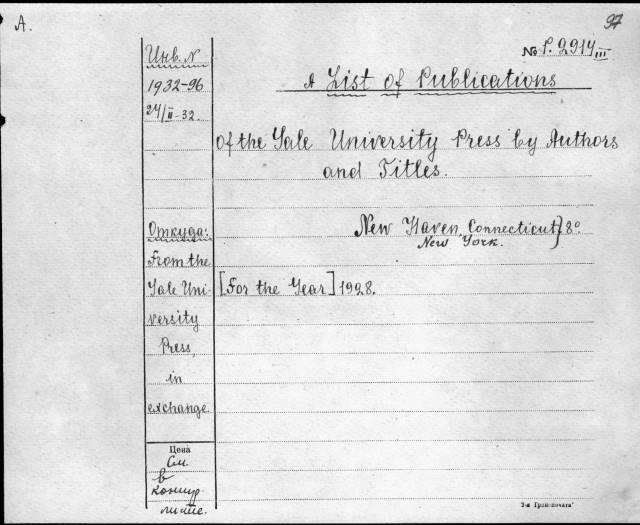 A.
97
Инв. N
1932-96
24/II-32.
№ P. 2914 III
A List of Publications
of the Yale University Press by Authors
and Titles.
New Haven, Connecticut } 8°
New York.
[For the Year] 1928.
Откуда:
From the
Yale Uni-
versity
Press,
in
exchange.
Цена
См.
в
2-я Гранпечать